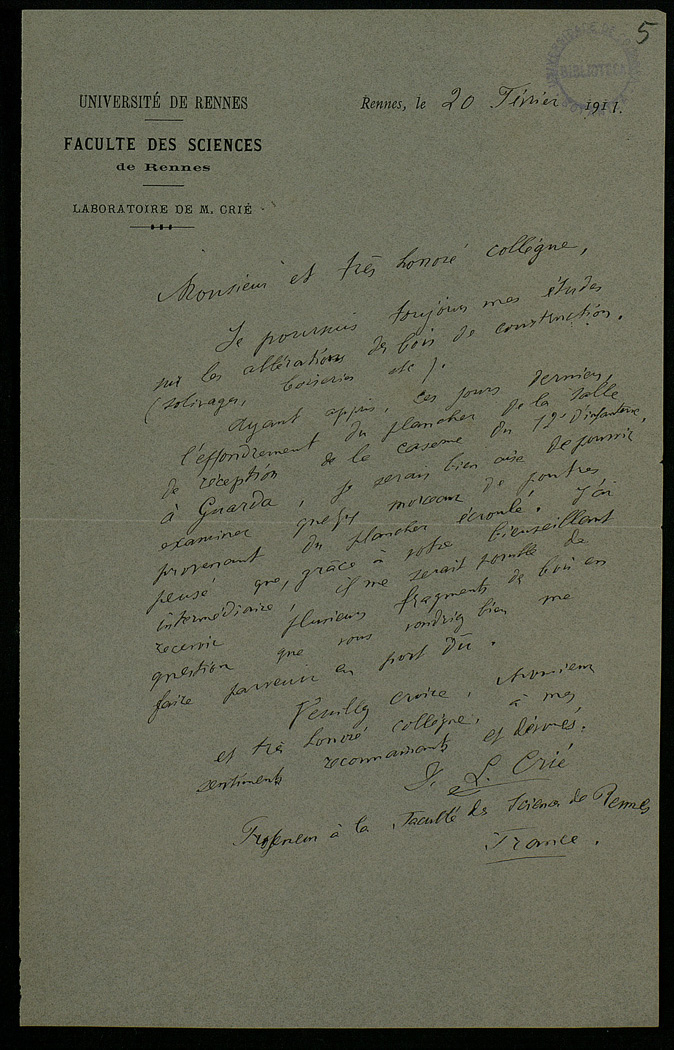 5
BIBLIOTECA
UNIVERSITÉ DE RENNES
FACULTE DES SCIENCES
de Rennes
LABORATOIRE DE M. CRIÉ
Rennes, le 20 Février 1911.
Monsieur et très honoré collègue,
Je poursuis toujours mes études
sur les altérations des bois de construction.
(solivages, boiseries etc).
Ayant appris, ces jours derniers,
l'effondrement du plancher de la salle
de réception de la caserne du 12e d'infanterie,
à Guarda, je serais bien aise de pouvoir
examiner quelques morceaux de poutres
provenant du plancher écroulé. J'ai
pensé que, grâce à votre bienveillant
intermédiaire, il me serait possible de
recevoir plusieurs fragments de bois en
question que vous voudriez bien me
faire parvenir en port dû.
Veuillez croire, Monsieur
et très honoré collègue, à mes
sentiments reconnaissants et dévoués.
L. Crié
Professeur à la Faculté des Sciences de Rennes
France.